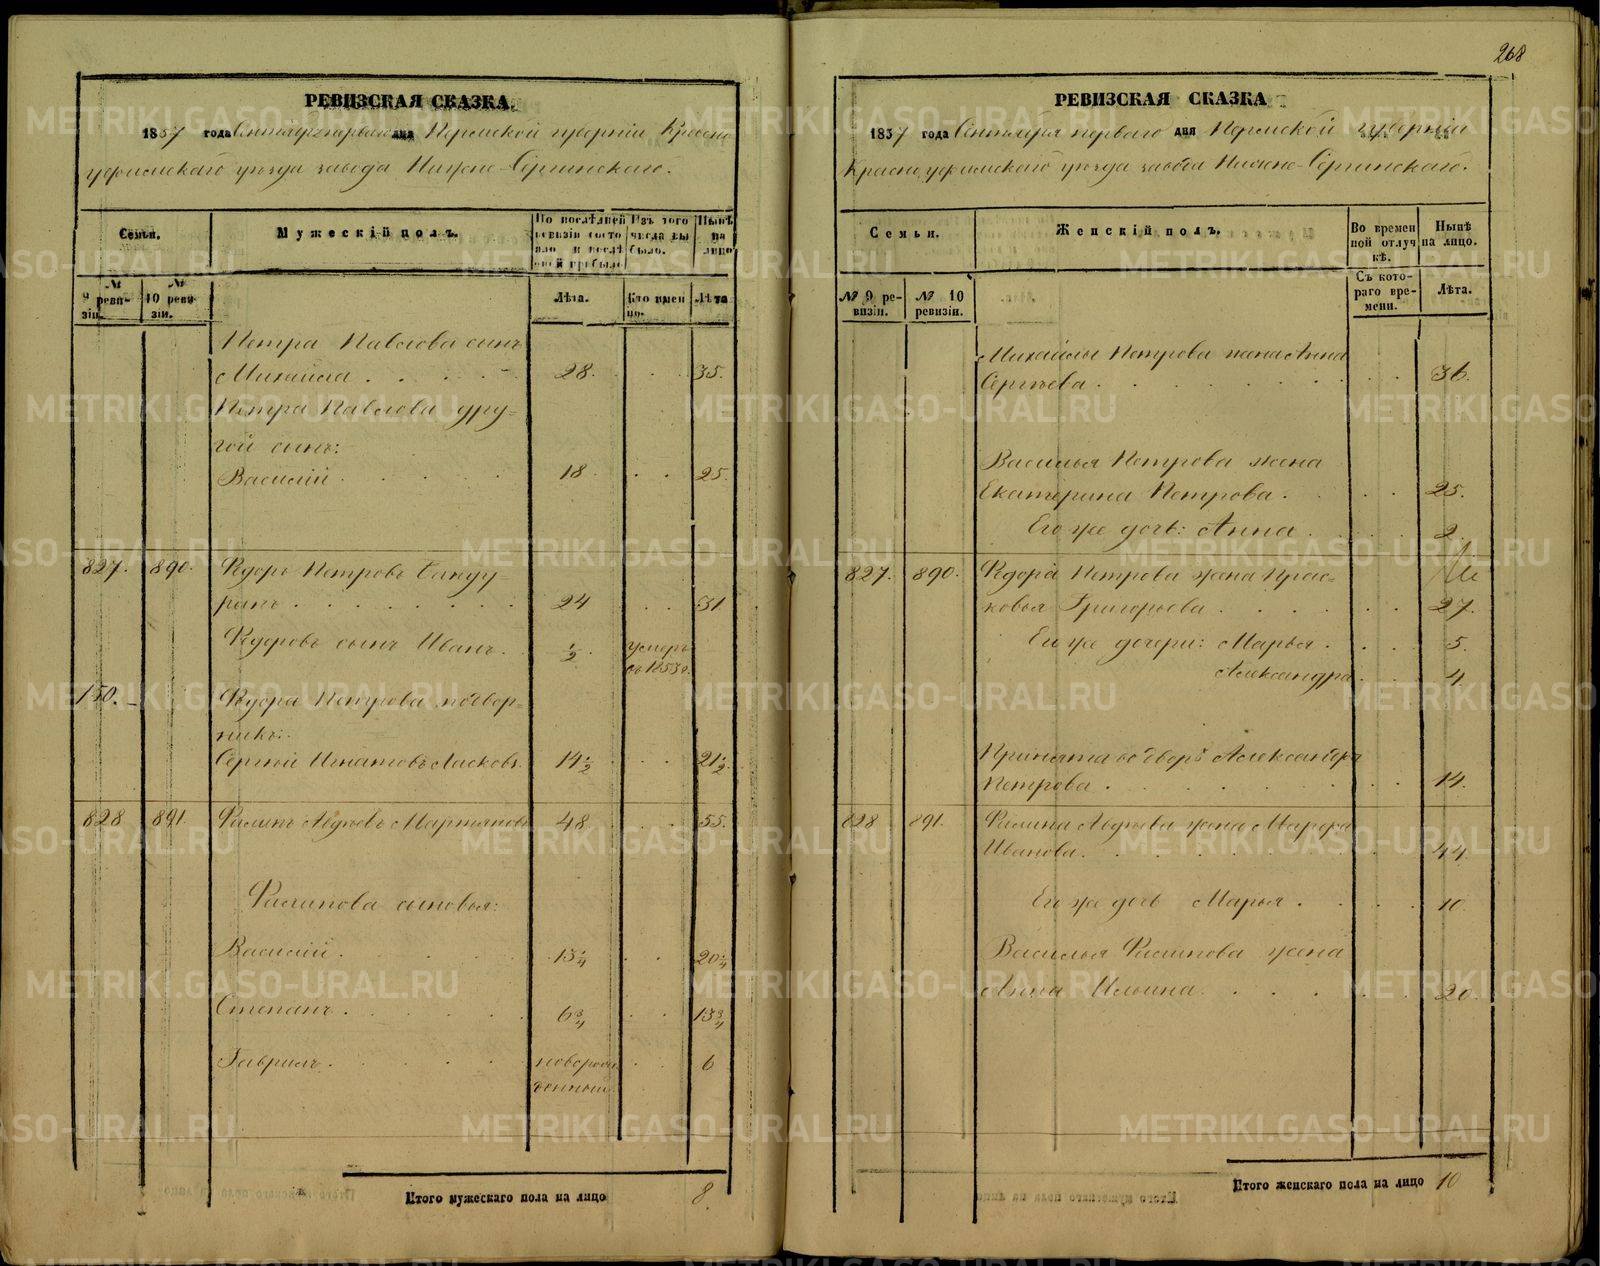 268
РЕВИЗСКАЯ СКАЗКА.
1857 года Сентября перваго дня Пермской губерніи Красно
уфимскаго уѣзда завода Нижне-Сергинскаго.
Семьи.
Мужескій полъ.
По послѣдней ревизіи состояло и послѣ оной прибыло
Изъ того числа выбыло.
Нынѣ на лицо
№ 9 ревизіи.
№ 10 ревизіи.
Лѣта.
Кто именно.
Лѣта
Петра Павлова сынъ
Михайла 28. 35.
Петра Павлова дру-
гой сынъ:
Василій 18 25.
827. 890. Ѳедоръ Петровъ
24 31
Ѳедоровъ сынъ Иванъ. ½ умеръ
въ 1853 г.
150. Ѳедора Петрова подвор-
никъ:
Сергѣй Игнатовъ Ласковъ. 14½ 21½
828 891. Филипъ Авдѣевъ Мартяновъ 48 55.
Филипова сыновья:
Василій. 13¼ 20¼
Степанъ 6¾ 13¾
Гаврилъ. новорож
денный 6
Итого мужескаго пола на лицо 8.
РЕВИЗСКАЯ СКАЗКА
1857 года Сентября перваго дня Пермской губерніи
Красноуфимскаго уѣзда завода Нижне-Сергинскаго.
Семьи.
Женскій полъ.
Во временной отлучкѣ.
Нынѣ на лицо.
№ 9 ревизіи.
№ 10 ревизіи.
Съ котораго времени.
Лѣта.
Михайлы Петрова жена Анна
Сергѣева. 36.
Василья Петрова жена
Екатерина Петрова. 25.
Его же дочь: Анна. 2
827. 890. Ѳедора Петрова жена Прас-
ковья Григорьева. 27.
Его же дочери: Марья. 5.
Александра. 4
Принята во дворъ Александра
Петрова. 14.
828 891. Филипа Авдѣева жена Марфа
Иванова. 44.
Его же дочь Марья. 10.
Василья Филипова жена
Анна Ильина. 20.
Итого женскаго пола на лицо 10
METRIKI.GASO-URAL.RU